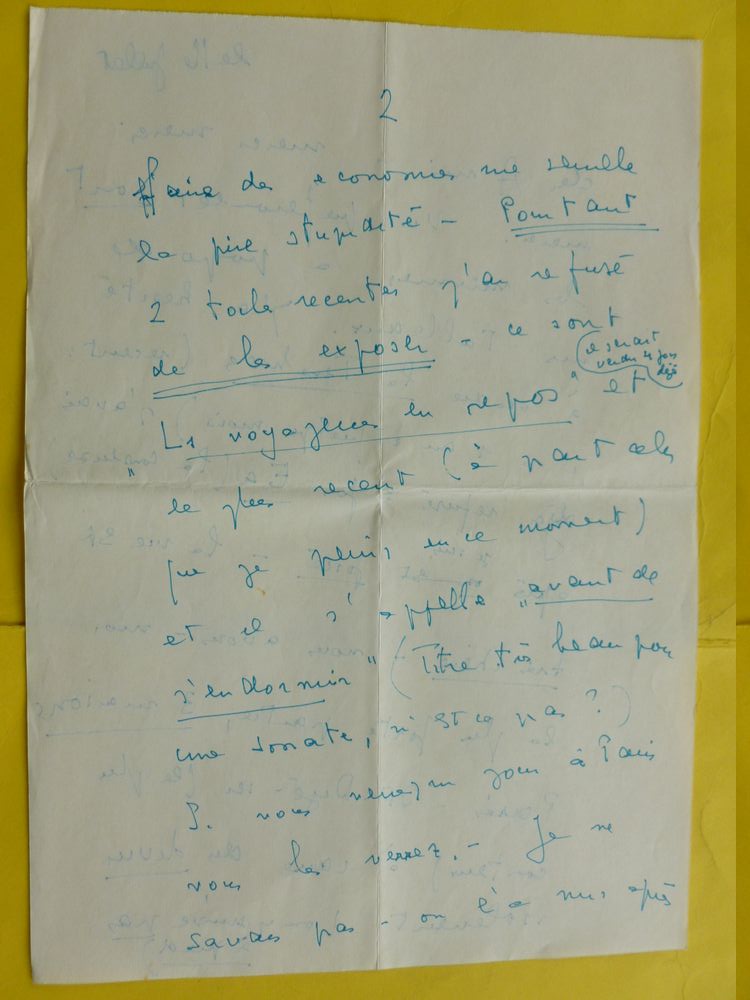 2
faire des economies me semble
la pire stupidité - Pourtant
2 toiles recentes j'ai refusé
de les exposer - ce sont
(ce serait
vendu 4 jours
déjà
"Les voyageuses en repos" et
le plus recent (à part celui
que je peins en ce moment)
et il s'appelle "avant de
s'endormir" (Titre très beau pour
une sonate, n'est ce pas?)
S. vous venez un jour à Paris
vous les verrez. - Je ne
savais pas - on a mis après